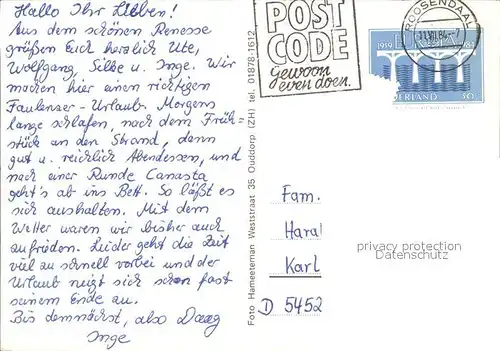 Hallo Ihr Lieben!
Aus dem schönen Renesse
grüßen Euch herzlich Ute,
Wolfgang, Silke u. Inge. Wir
machen hier einen richtigen
Faulenzer-Urlaub. Morgens
lange schlafen, nach dem Früh=
stück an den Strand, dann
gut u. reichlich Abendessen, und
nach einer Runde Canasta
geht's ab ins Bett. So läßt es
sich aushalten. Mit dem
Wetter waren wir bisher auch
zufrieden. Leider geht die Zeit
viel zu schnell vorbei und der
Urlaub neigt sich schon fast
seinem Ende zu.
Bis demnächst, also Daag
Inge
Foto Hameeteman Weststraat 35 Ouddorp (ZH) tel. 01878-1612
POST
CODE
Gewoon
even doen.
ROOSENDAAL
1959
NEDERLAND 50
Fam.
Haral
Karl
D 5452
privacy protection
Datenschutz